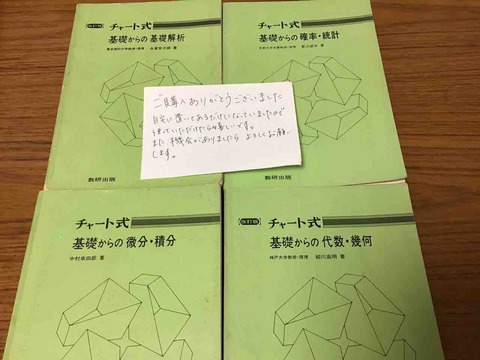 改訂版
チャート式
基礎からの基礎解析
チャート式
基礎からの確率・統計
ご購入ありがとうございました
自宅に置いてあるだけになっていましたので
使っていただけたら嬉しいです。
また、機会がありましたら よろしくお願い
します。
数研出版
チャート式
基礎からの 微分・積分
中村幸四郎 著
改訂版
チャート式
基礎からの 代数・幾何
神戸大学教授・理博 稲川真明 著